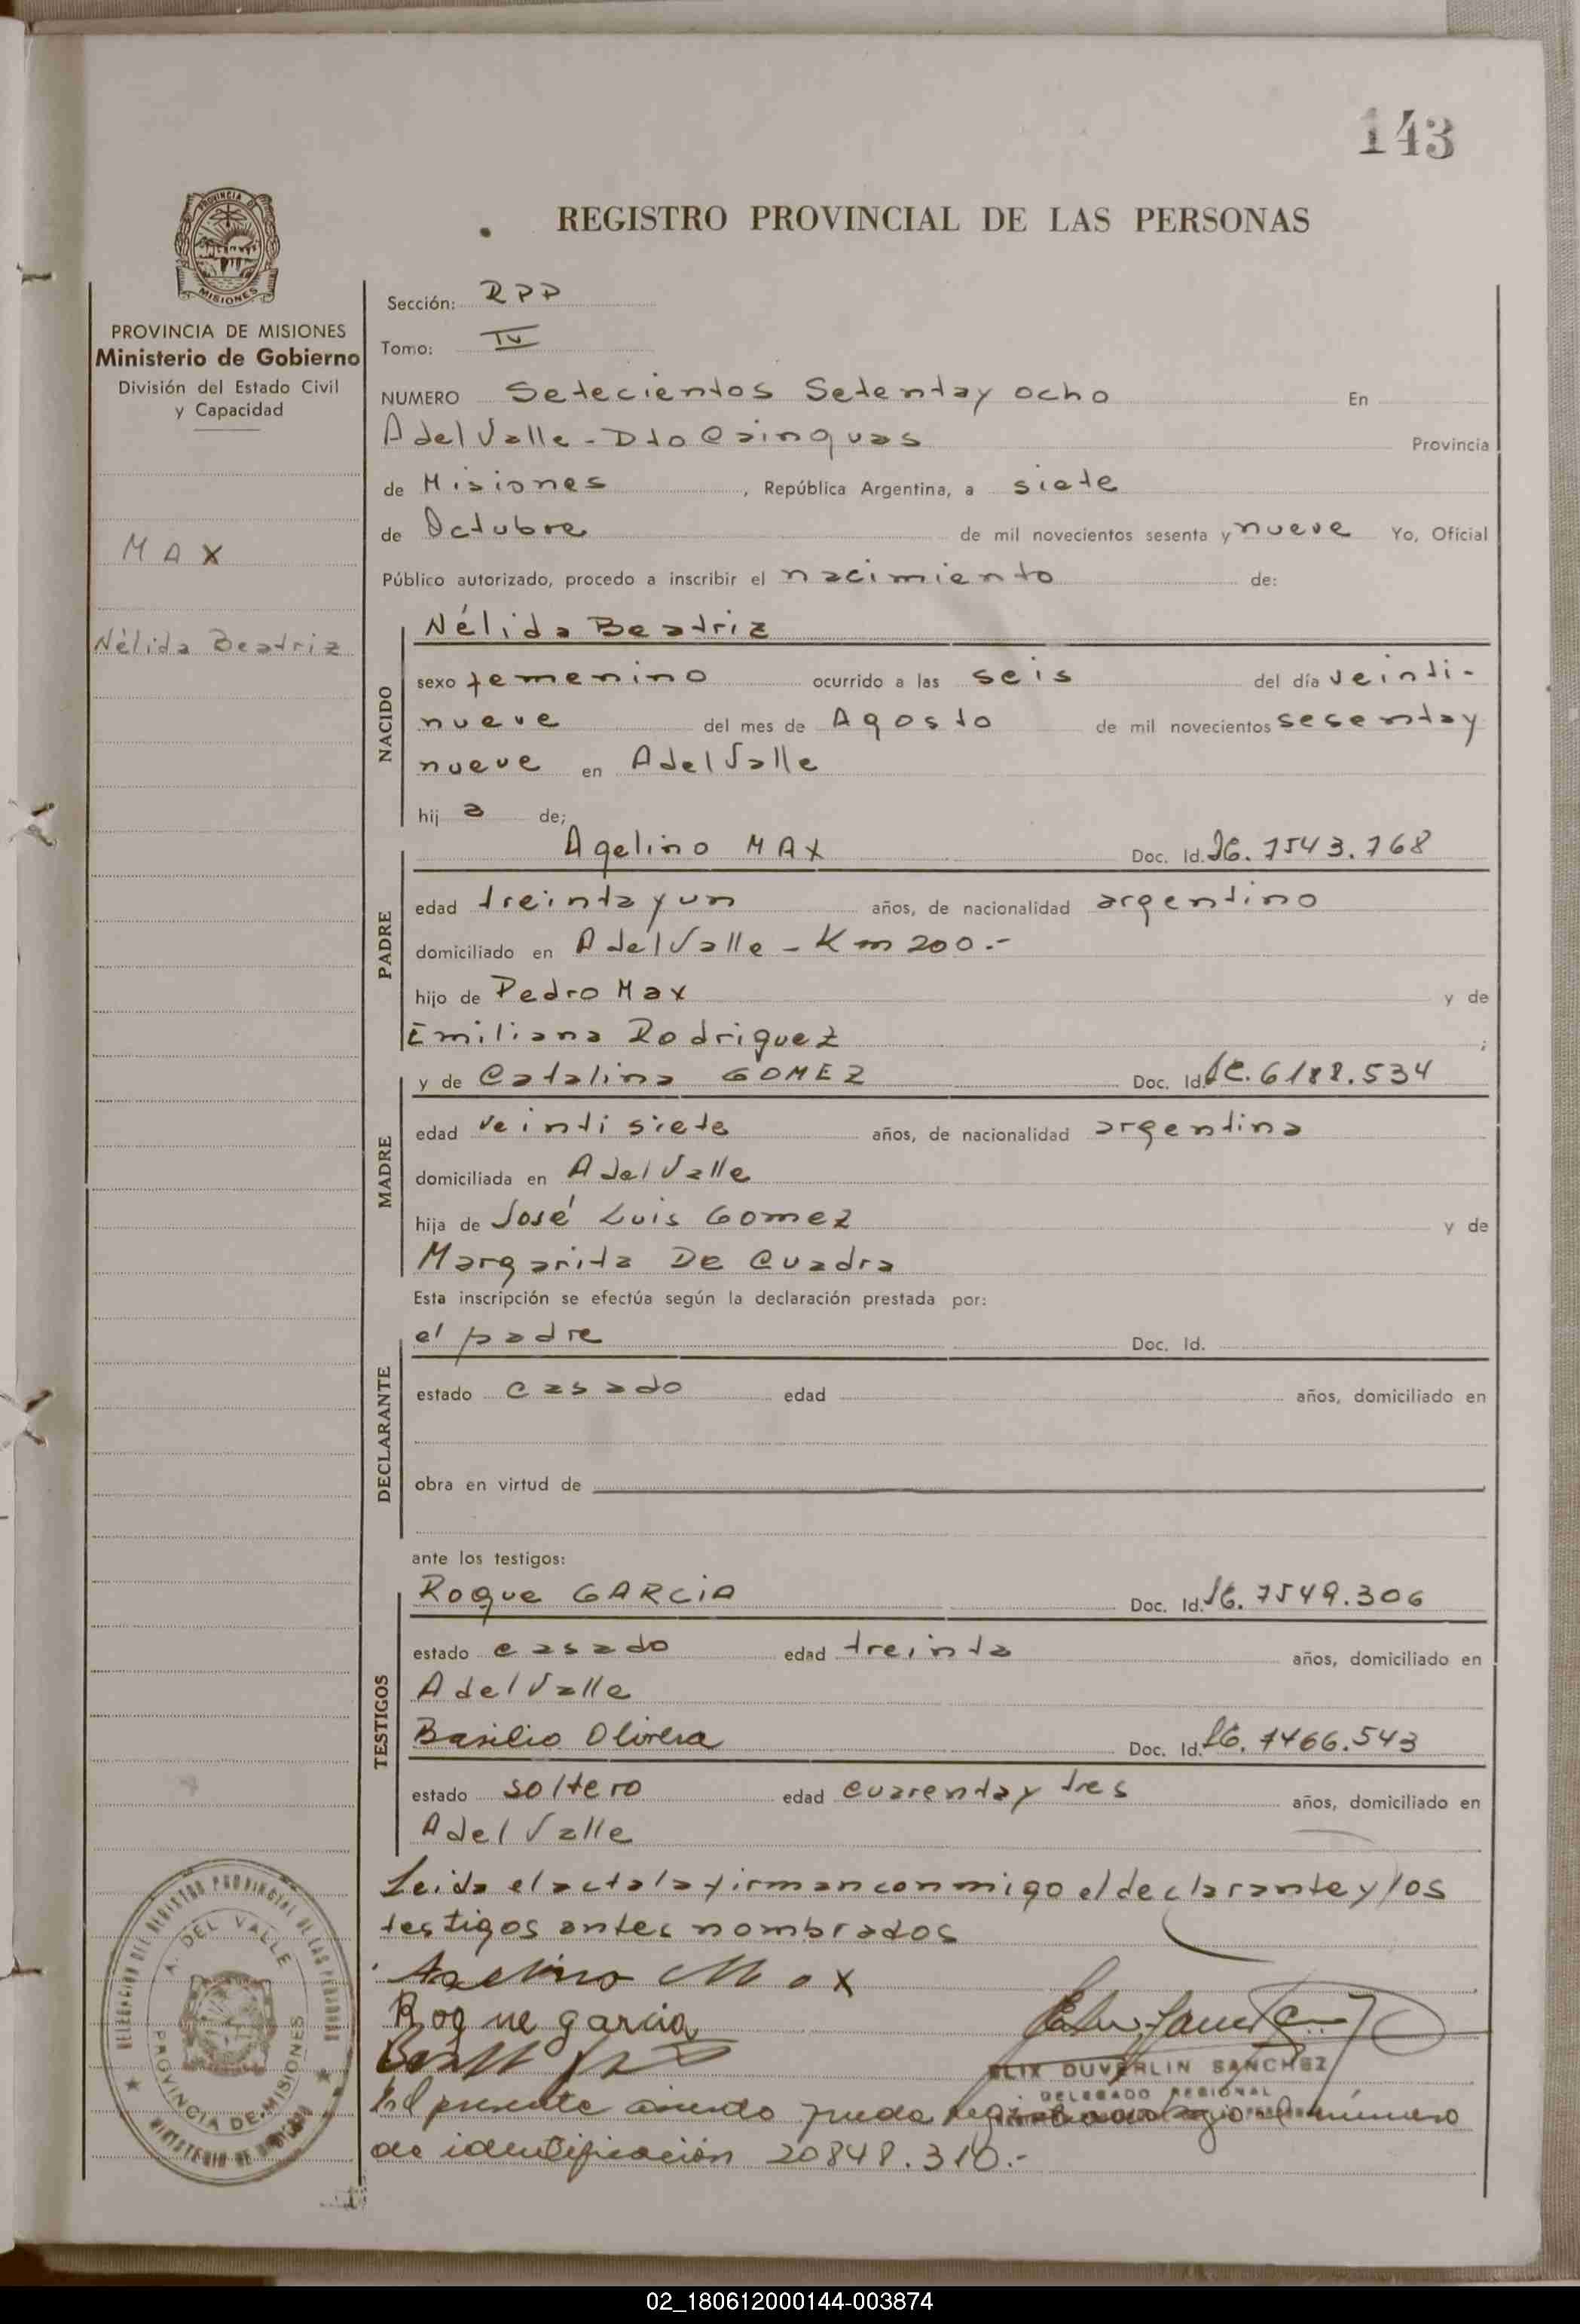 143
PROVINCIA DE
MISIONES
REGISTRO PROVINCIAL DE LAS PERSONAS
PROVINCIA DE MISIONES
Ministerio de Gobierno
División del Estado Civil
y Capacidad
MAX
Nélida Beatriz
Sección: RPP
Tomo: IV
NUMERO Setecientos Setenta y ocho En
A del Valle - Dto Cainguas Provincia
de Misiones, República Argentina, a siete
de Octubre de mil novecientos sesenta y nueve Yo, Oficial
Público autorizado, procedo a inscribir el nacimiento de:
NACIDO
Nélida Beatriz
sexo femenino ocurrido a las seis del día veinti-
nueve del mes de Agosto de mil novecientos sesenta y
nueve en A del Valle
hij a de;
PADRE
Agelino MAX Doc. Id. 7543.768
edad treinta y un años, de nacionalidad argentino
domiciliado en A del Valle - Km 200.-
hijo de Pedro Max y de
Emiliana Rodriguez ;
MADRE
y de Catalina GOMEZ Doc. Id. 6188.534
edad veintisiete años, de nacionalidad argentina
domiciliada en A del Valle
hija de José Luis Gomez y de
Margarita De Cuadra
Esta inscripción se efectúa según la declaración prestada por:
DECLARANTE
el padre Doc. Id.
estado casado edad años, domiciliado en
obra en virtud de
ante los testigos:
TESTIGOS
Roque GARCIA Doc. Id. 7549.306
estado casado edad treinta años, domiciliado en
A del Valle
Basilio Olivera Doc. Id. 7466.543
estado soltero edad cuarenta y tres años, domiciliado en
A del Valle
Leida el acta la firman conmigo el declarante y los
testigos antes nombrados
Max
Roque garcia
ELIX DUVERLIN SANCHEZ
DELEGADO REGIONAL
El presente asiento queda bajo el número
de identificación 20848.310.-
DELEGACION DEL REGISTRO PROVINCIAL DE LAS PERSONAS
A. DEL VALLE
PROVINCIA DE MISIONES
MINISTERIO DE GOBIERNO
02_180612000144-003874